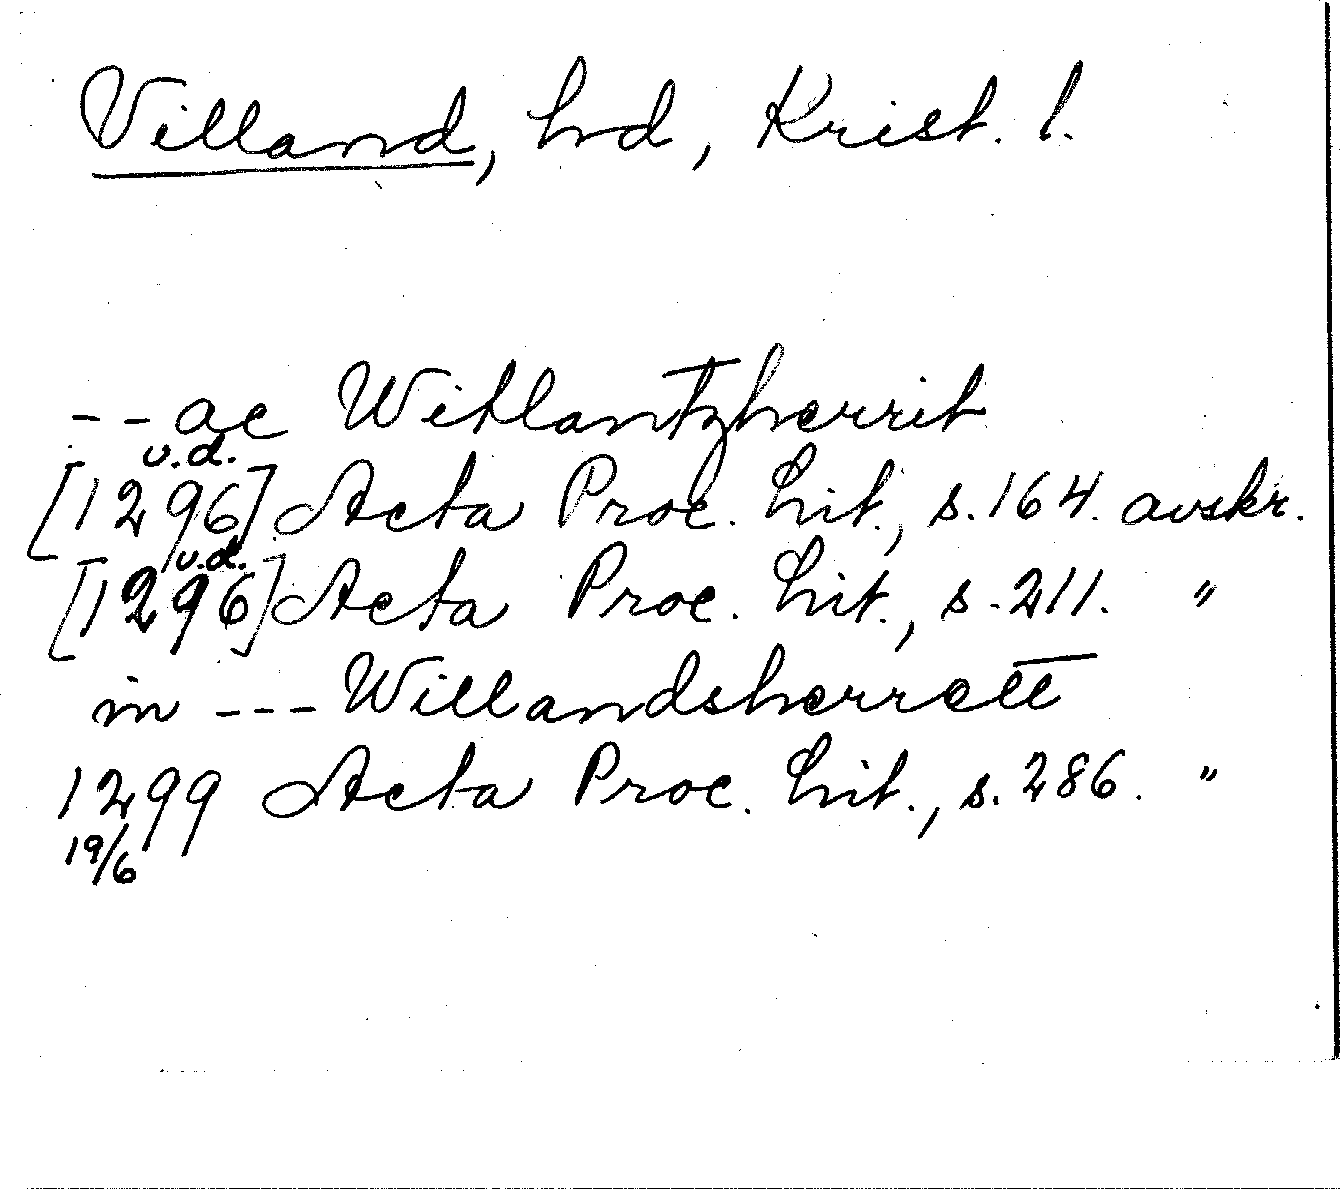 Villand, hd, Krist. l.
-- ac Witlantzherrit
u.d.
[1296] Acta Proc. Lit., s. 164. avskr.
u.d.
[1296] Acta Proc. Lit., s. 211. "
in --- Willandsherrett
1299 Acta Proc. Lit., s. 286. "
19/6